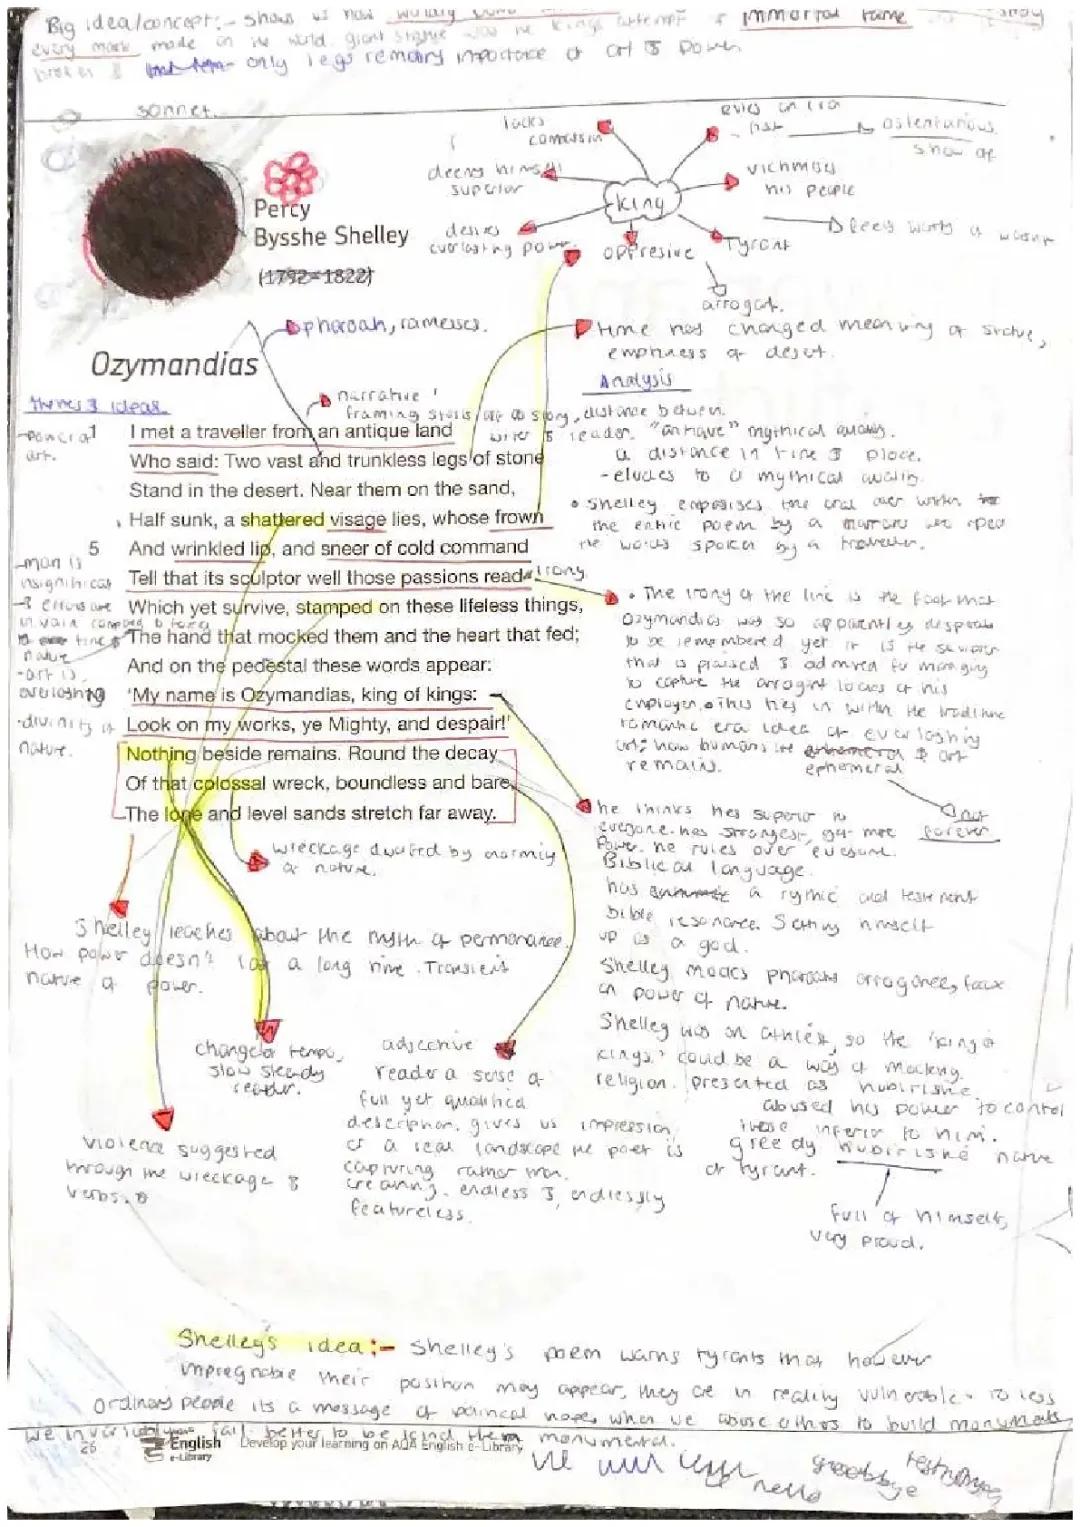 Big idea/concept:- shows us how
every mark made on the world. giant statue was the kings attempt & immortal fame
broken & only legs remain, importance of art & power
sonnet.
lacks
deems himself
superior
desires
everlasting power.
King
oppresive
Tyrant
arrogat.
victimises
his people
ostentatious
show of
feels worthy of
Percy
Bysshe Shelley
(1792-1822)
pharoah, ramesses.
time has changed meaning of statue,
emptiness of desert.
Ozymandias
Analysis
themes & ideas
-power of
art.
narrative
framing
distance between
writer & reader. "antique" mythical quality.
a distance in time & place.
-eludes to a mythical quality.
1 I met a traveller from an antique land
Who said: Two vast and trunkless legs of stone
Stand in the desert. Near them on the sand,
Half sunk, a shattered visage lies, whose frown
5 And wrinkled lip, and sneer of cold command
Tell that its sculptor well those passions read
Which yet survive, stamped on these lifeless things,
The hand that mocked them and the heart that fed;
And on the pedestal these words appear:
'My name is Ozymandias, king of kings:
Look on my works, ye Mighty, and despair!'
Nothing beside remains. Round the decay
Of that colossal wreck, boundless and bare,
The lone and level sands stretch far away.
-man is
insignificant
& efforts are
in vain
time &
nature
-art is
everlasting
-divinity of
nature.
• Shelley
the entire poem by a
the words spoken by a traveller.
irony
• The irony of the line is the fact that
Ozymandias was so apparently desperate
to be remembered yet it is the
that is praised & admired for managing
to capture the arrogant looks of his
employer. This ties in with the
romantic era idea of everlasting
art; how humans are ephemeral & art
remains.
not
forever
he thinks hes superior to
everyone. hes strongest, got more
Power. he rules over everyone.
Biblical language.
has a old testement
bible resonance. Setting himself
up as a god.
Shelley mocks pharoahs arrogance, focus
on power of nature.
Shelley was an athiest, so the 'king of
kings.' could be a way of mocking
religion. presented as hubirishe
abused his power to control
those inferior to him.
greedy hubirishe nature
of tyrant.
full of himself,
very proud.
wreckage dwarfed by enormity
of nature.
Shelley teaches about the myth of permanance.
How power doesn't last a long time. Transient
nature of power.
change of tempo,
slow steady
reader.
adjective
reader a sense of
full yet qualified
description. gives us impression
of a real landscape the poet is
capturing rather than
creating. endless & endlessly
featureless.
violence suggested
through the wreckage &
verbs.
Shelley's idea:- Shelley's poem warns tyrants that however
impregnable their position may appear, they are in reality vulnerable. To less
ordinary people its a message of political hope, when we abuse others to build monuments
we invariably fail. better to be kind then monumental.
26
English
e-Library
Develop your learning on AQA English e-Library
hello